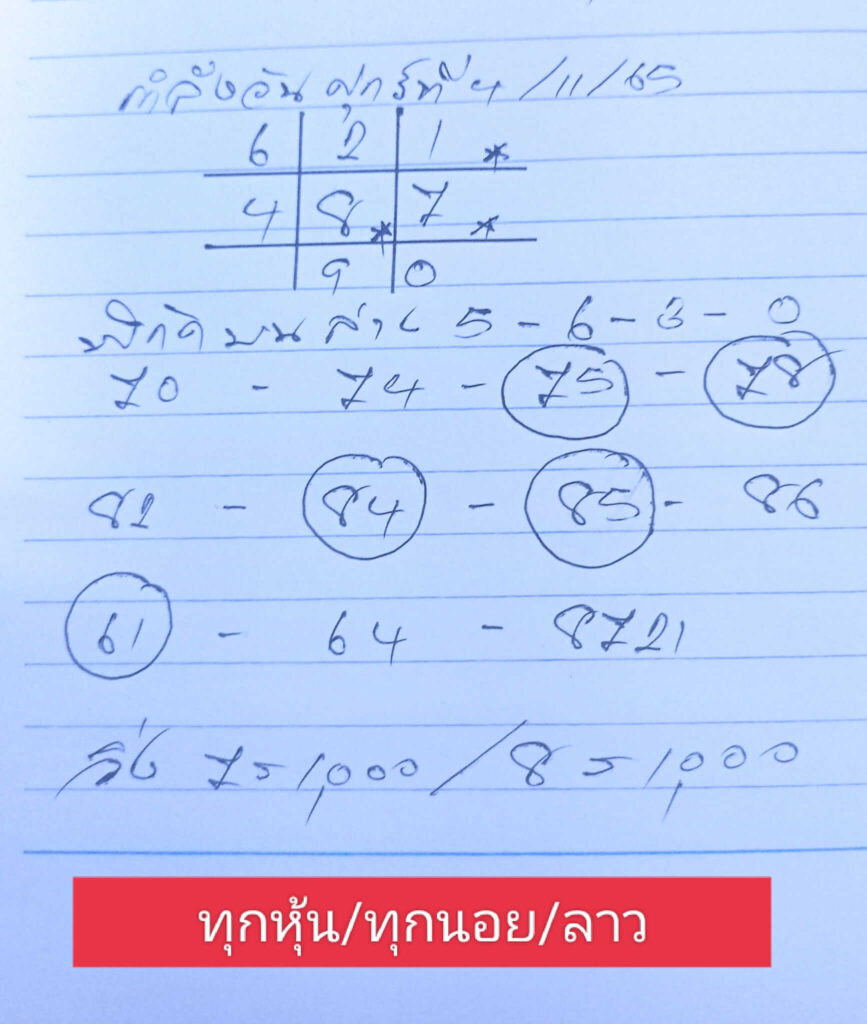 กำลังวันศุกร์ที่ 4/11/65
6 2 1 *
4 8 * 7 *
9 0
พิกัด บน ล่าง 5 - 6 - 3 - 0
70 - 74 - 75 - 78
82 - 84 - 85 - 86
61 - 64 - 8721
วิ่ง 7 = 1,000 / 8 = 1,000
ทุกหุ้น/ทุกนอย/ลาว